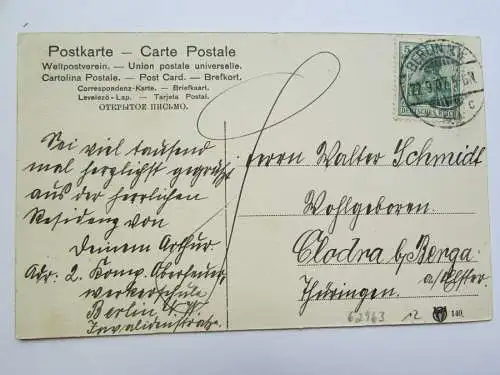 Postkarte — Carte Postale
Weltpostverein. — Union postale universelle.
Cartolina Postale. — Post Card. — Brefkort.
Correspondenz-Karte. — Briefkaart.
Levelező-Lap. — Tarjeta Postal.
ОТКРЫТОЕ ПИСЬМО.
BERLIN
DEUTSCHES REICH
Sei viel tausend
mal herzlichst gegrüßt
aus der herrlichen
Residenz von
Deinem Arthur
Adr: 2. Komp. Oberfeuer-
werkerschule
Berlin
Invalidenstraße.
Herrn Walter Schmidt
Wohlgeboren.
Clodra b/Berga
a/Elster.
Thüringen.
62963
12
140.